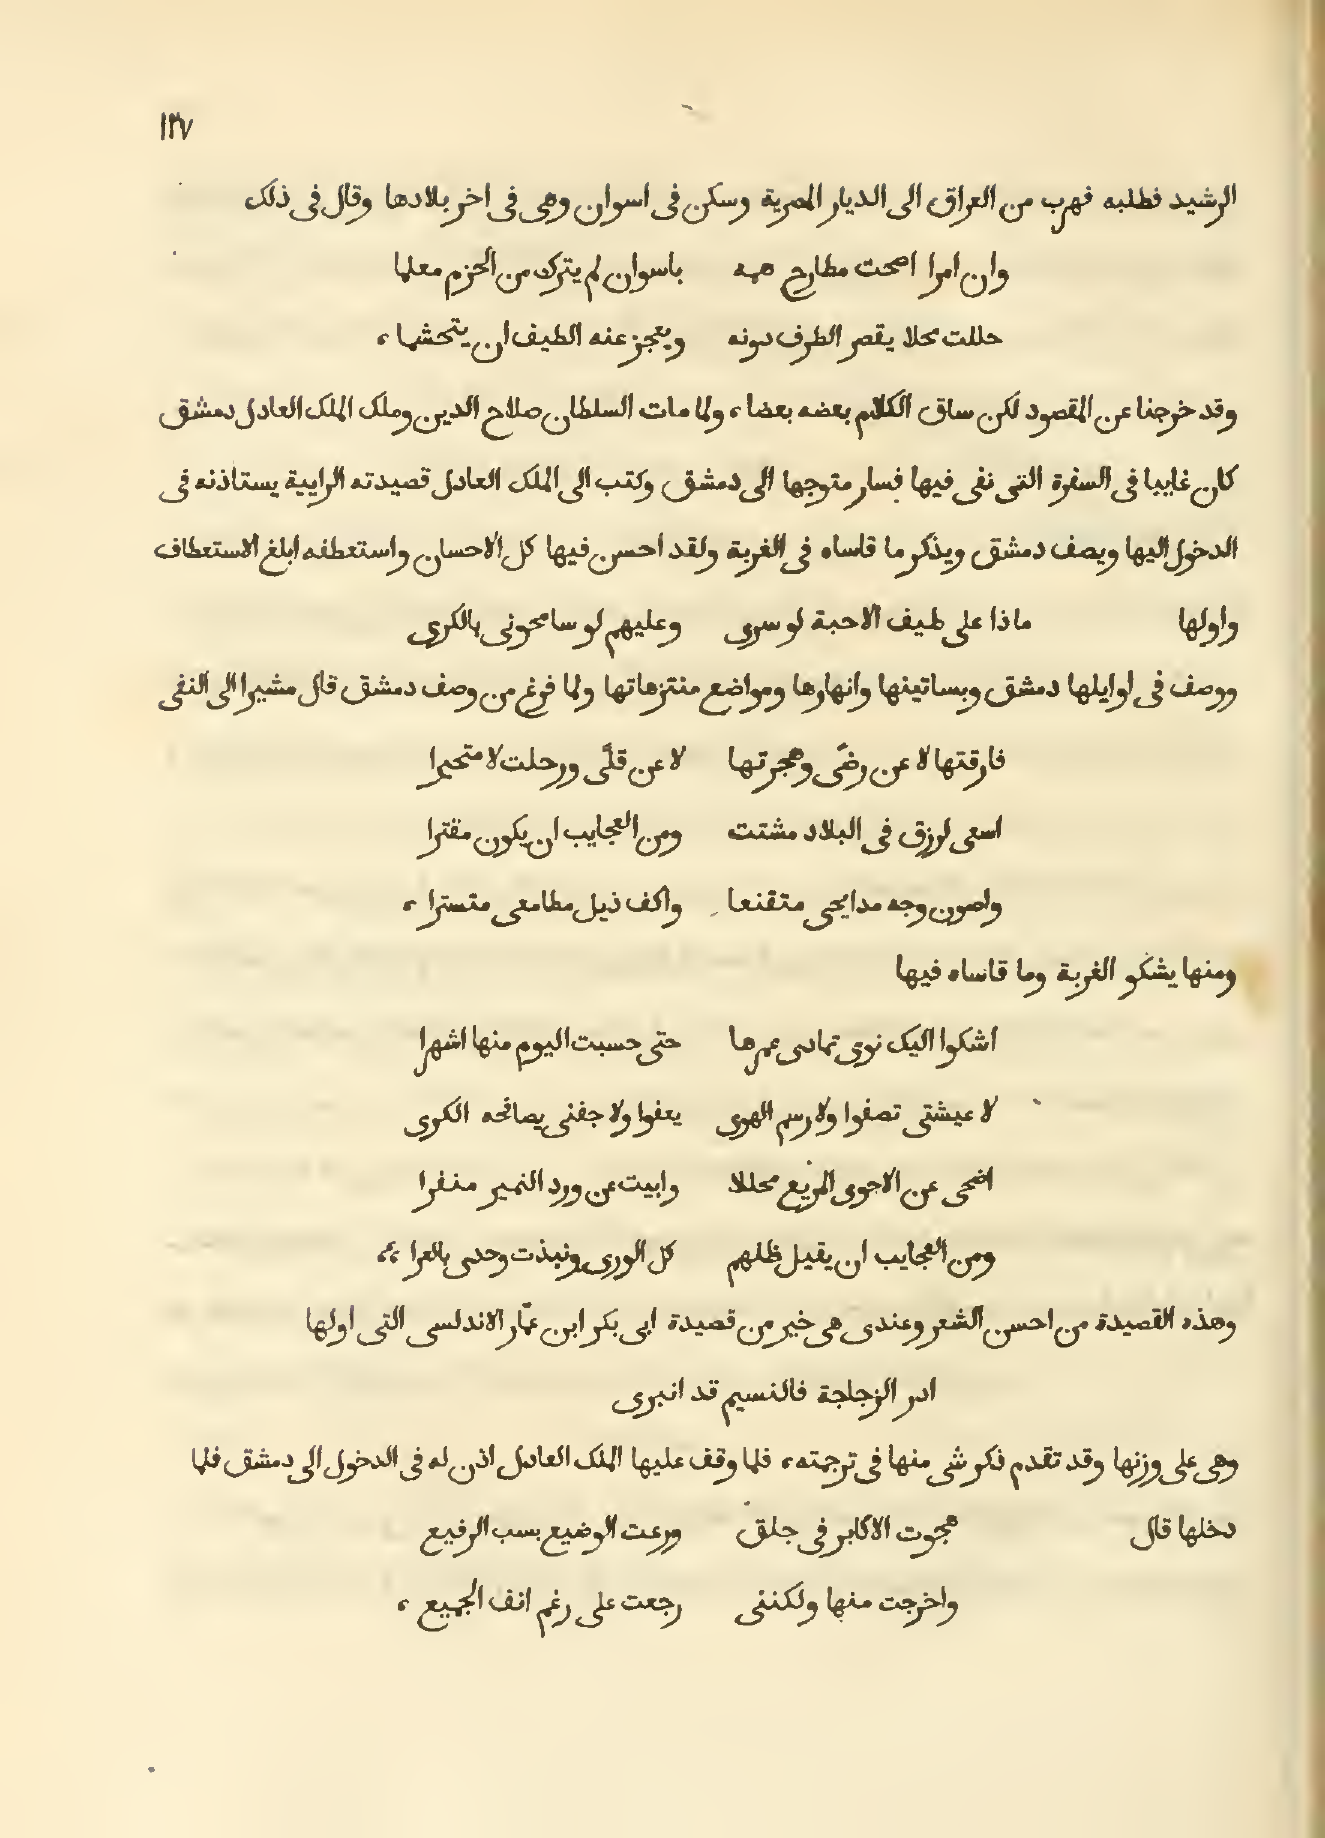 ١٢٧
الرشيد فطلبه فهرب من العراق الى الديار المصرية وسكن فى اسوان وهى فى اخر بلادها وقال فى ذلك
وان امرا اضحت مطارح همه باسوان لم يترك من الحزم معلما
حللت محلا يقصر الطرف دونه ويعجز عنه الطيف ان يتحشما ،
وقد خرجنا عن المقصود لكن ساق الكلام بعضه بعضا ، ولما مات السلطان صلاح الدين وملك الملك العادل دمشق
كان غايبا فى السفرة التى نفى فيها فسار متوجها الى دمشق وكتب الى الملك العادل قصيدته الرايية يستاذنه فى
الدخول اليها ويصف دمشق ويذكر ما قاساه فى الغربة ولقد احسن فيها كل الاحسان واستعطفه ابلغ الاستعطاف
واولها ماذا على طيف الاحبة لو سرى وعليهم لو سامحونى بالكرى
ووصف فى اوايلها دمشق وبساتينها وانهارها ومواضع منتزهاتها ولما فرغ من وصف دمشق قال مشيرا الى النفى
فارقتها لا عن رضًى وهجرتها لا عن قلًى ورحلت لا متحيرا
اسعى لرزق فى البلاد مشتت ومن العجايب ان يكون مقترا
واصون وجه مدايحى متقنعا واكف ذيل مطامعى متسترا ،
ومنها يشكو الغربة وما قاساه فيها
اشكوا اليك نوى تمادى عمرها حتى حسبت اليوم منها اشهرا
لا عيشتى تصفوا ولا رسم الهوى يعفوا ولا جفنى يصافحه الكرى
اضحى عن الاحوى المريع محللا وابيت عن ورد النمير منفرا
ومن العجايب ان يقيل بظلهم كل الورى ونبذت وحدى بالعرا ،،
وهذه القصيدة من احسن الشعر وعندى هى خير من قصيدة ابى بكر ابن عمّار الاندلسى التى اولها
ادر الزجاجة فالنسيم قد انبرى
وهى على وزنها وقد تقدم ذكر شى منها فى ترجمته ، فلما وقف عليها الملك العادل اذن له فى الدخول الى دمشق فلما
دخلها قال هجوت الاكابر فى جلق ورعت الوضيع بسب الرفيع
واخرجت منها ولكننى رجعت على رغم انف الجميع ،